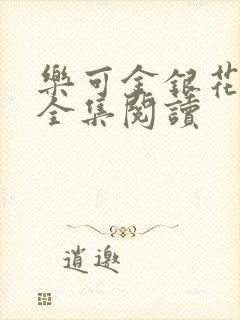 樂可金銀花
全集閱讀
逍邀